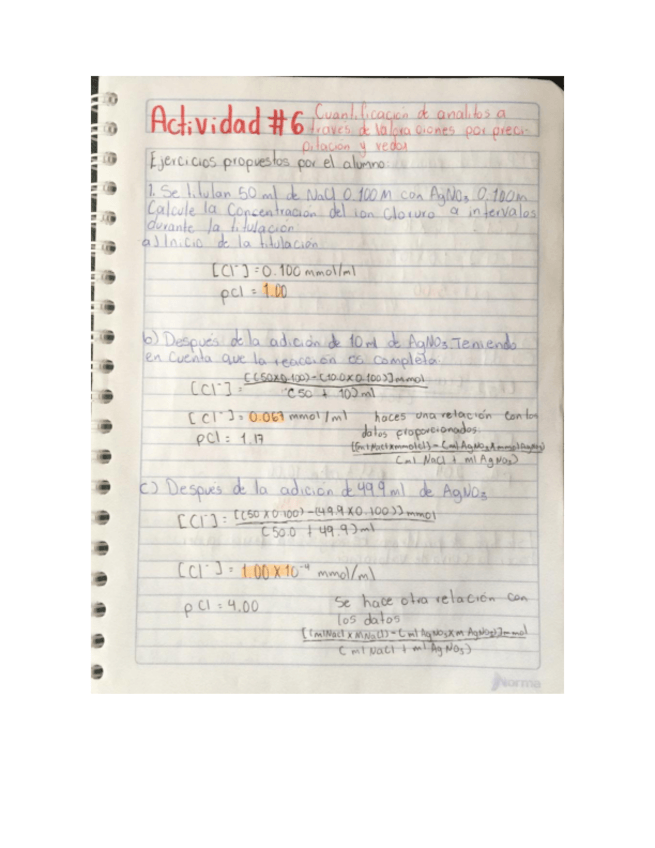 Actividad #6 Cuantificación de analitos a
través de valoraciones por preci-
pitación y redox
Ejercicios propuestos por el alumno:
1. Se titulan 50 ml de NaCl 0.100M con AgNO₃ 0.100M
Calcule la Concentración del ion Cloruro a intervalos
durante la titulación:
a) Inicio de la titulación
[Cl⁻] = 0.100 mmol/ml
pCl = 1.00
b) Después de la adición de 10 ml de AgNO₃. Teniendo
en cuenta que la reacción es completa:
[Cl⁻] = [(50x0.100) - (10.0x0.100)] mmol
(50 + 10) ml
[Cl⁻] = 0.067 mmol/ml haces una relación con los
pCl = 1.17 datos proporcionados:
(ml NaCl + ml AgNO₃)
c) Después de la adición d 49.9 ml de AgNO₃
[Cl⁻] = [(50 x 0.100) - (49.9 x 0.100)] mmol
(50.0 + 49.9) ml
[Cl⁻] = 1.00 x 10⁻⁴ mmol/ml
pCl = 4.00 Se hace otra relación con
los datos
[(ml NaCl x M NaCl) - (ml AgNO₃ x M AgNO₃)] mmol
(ml NaCl + ml AgNO₃)
Norma